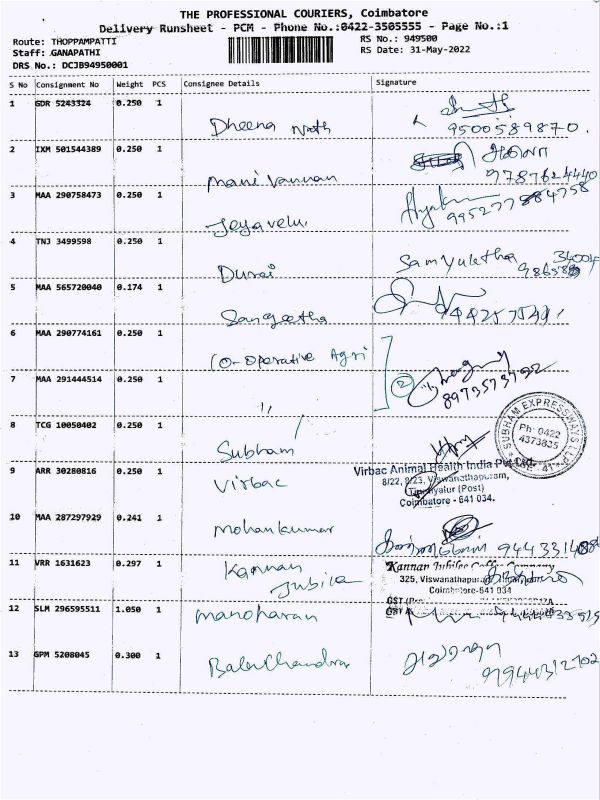 THE PROFESSIONAL COURIERS, Coimbatore
Delivery Runsheet - PCM - Phone No.:0422-3505555 - Page No.:1
Route: THOPPAMPATTI RS No.: 949500
Staff: GANAPATHI RS Date: 31-May-2022
DRS No.: DCJB94950001
S No Consignment No Weight PCS Consignee Details Signature
1 GDR 5243324 0.250 1 Dheena Nath
9500589870.
2 IXM 501544389 0.250 1 Mani Vannan
9787624440
3 MAA 290758473 0.250 1 Jeyavelu
4 TNJ 3499598 0.250 1 Durai Samyuletha
5 MAA 565720040 0.174 1 Sangeetha
6 MAA 290774161 0.250 1 Co-operative Agri
7 MAA 291444514 0.250 1 ,, 2
8973573792
8 TCG 10050402 0.250 1 Subham
SUBHAM EXPRESSWAYS LLP
Ph: 0422
4373835
9 ARR 30280816 0.250 1 Virbac
Virbac Animal Health India Pvt. Ltd.
8/22, 8/23, Viswanathapuram,
(Post)
Coimbatore - 641 034.
10 MAA 287297929 0.241 1 Mohankumar
11 VRR 1631623 0.297 1 Kannan Jubila
Kannan Jubilee Coffee Company
325, Viswanathapuram
Coimbatore-641 034
12 SLM 296595511 1.050 1 Manoharan
13 GPM 5208045 0.300 1 Balachandra
97944312702